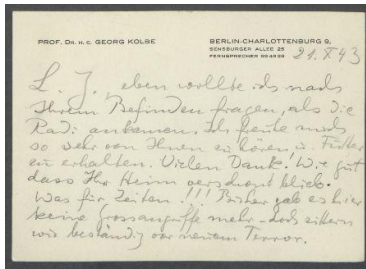 PROF. DR. H. C. GEORG KOLBE
BERLIN-CHARLOTTENBURG 9,
SENSBURGER ALLEE 25
FERNSPRECHER
21. X 43
L. J., eben wollte ich nach
Ihrem Befinden fragen, als die
ankamen. Ich freute mich
so sehr von Ihnen zu hören u.
zu erhalten. Vielen Dank! Wie gut
dass Ihr Heim verschont blieb.
Was für Zeiten!!! Bisher gab es hier
keine Grossangriffe mehr - doch zittern
wir beständig vor neuem Terror.